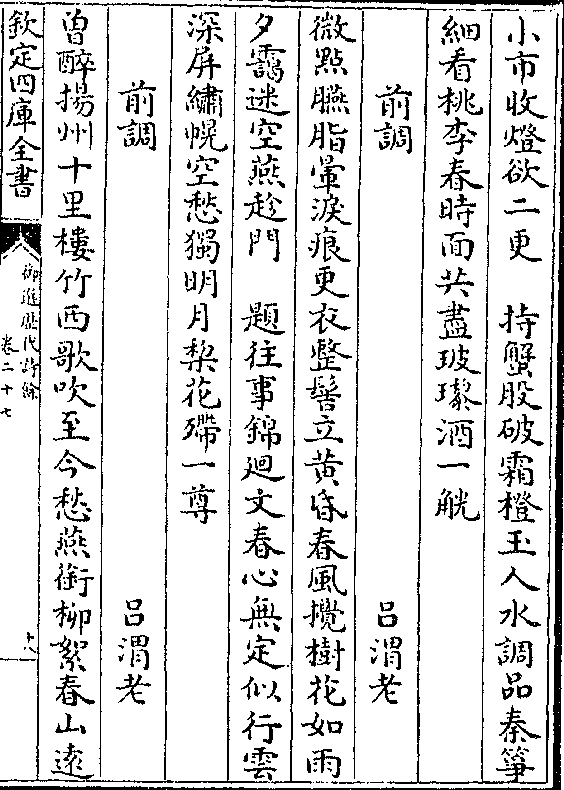 小市收燈欲二更　持蟹股破霜橙玉人水調品秦箏
細看桃李春時面共盡玻瓈酒一觥
前調　呂渭老
微點臙脂暈淚痕更衣整髻立黃昏春風攪樹花如雨
夕靄迷空燕趁門　題往事錦廻文春心無定似行雲
深屏繡幌空愁獨明月棃花殢一尊
前調　呂渭老
曽醉揚州十里樓竹西歌吹至今愁燕銜柳絮春山遠
欽定四庫全書
御選歷代詩餘
卷二十七
十八